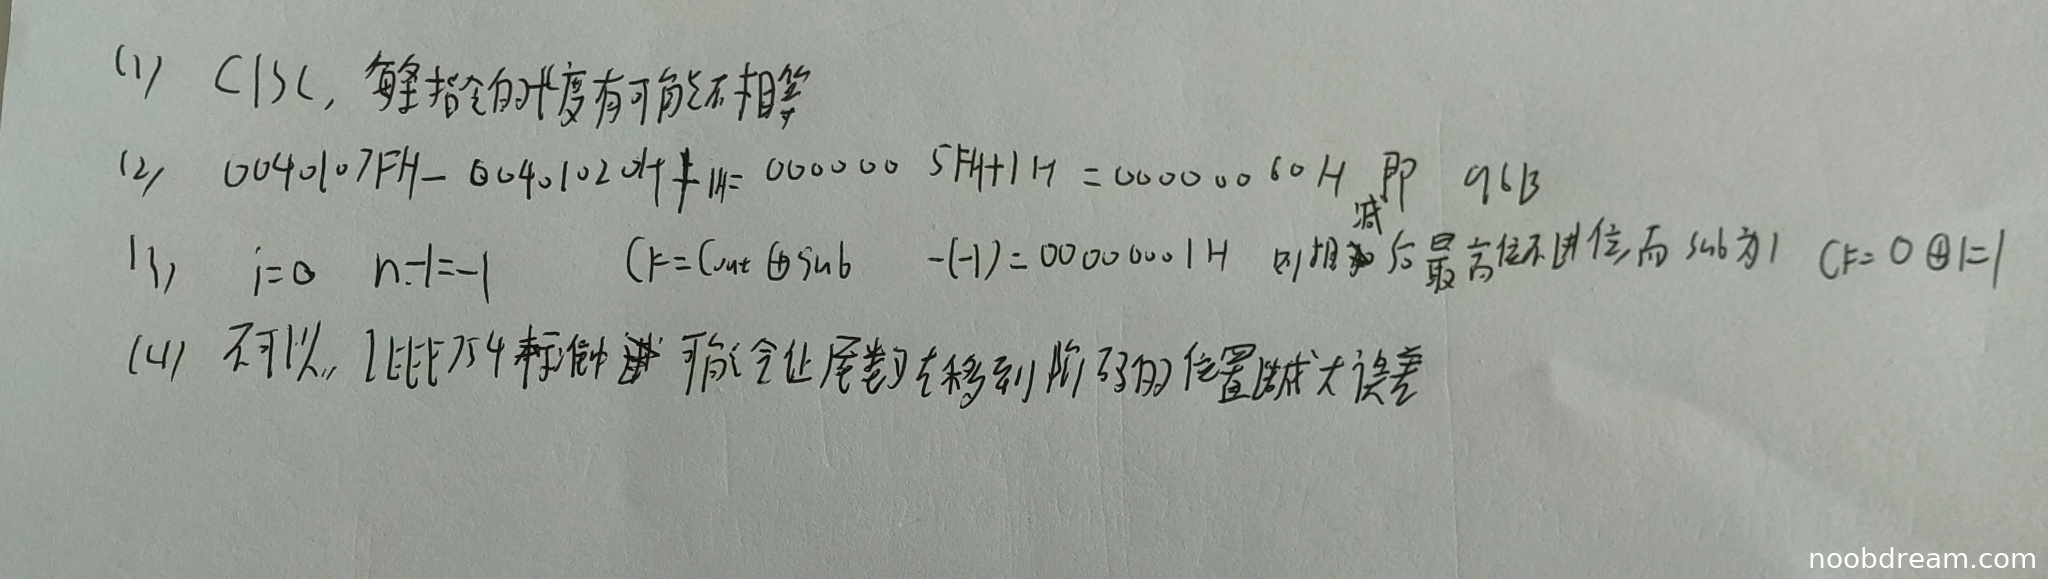 (1) CISC, 每条指令的长度有可能不相等
(2) 0040107FH - 00401020H + 1H = 0000005FH+1H = 00000060H 即 96B
(3) i=0 n-1=-1 CF=Cout⊕sub -(-1)=00000001H 则相减后最高位不进位,而sub为1 CF=0⊕1=1
(4) 不可以, IEEE754标准中 可能会让尾数左移到阶码的位置造成大误差
noobdream.com